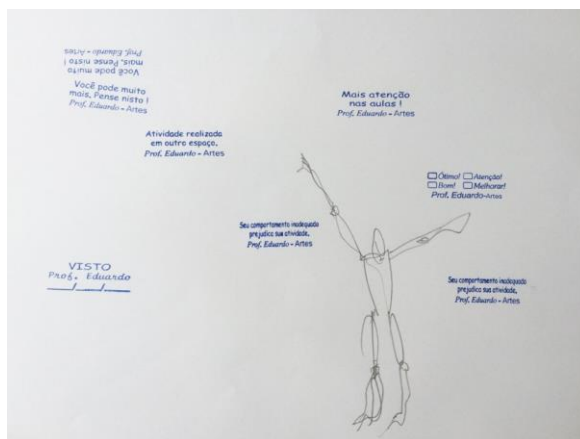 Você pode muito
mais, Pense nisto !
Prof. Eduardo - Artes
Você pode muito
mais, Pense nisto !
Prof. Eduardo - Artes
Mais atenção
nas aulas !
Prof. Eduardo - Artes
Atividade realizada
em outro espaço,
Prof. Eduardo - Artes
Ótimo! Atenção!
Bom! Melhorar!
Prof. Eduardo-Artes
Seu comportamento inadequado
prejudica sua atividade,
Prof. Eduardo - Artes
VISTO
Prof. Eduardo
___/___/___
Seu comportamento inadequado
prejudica sua atividade,
Prof. Eduardo - Artes